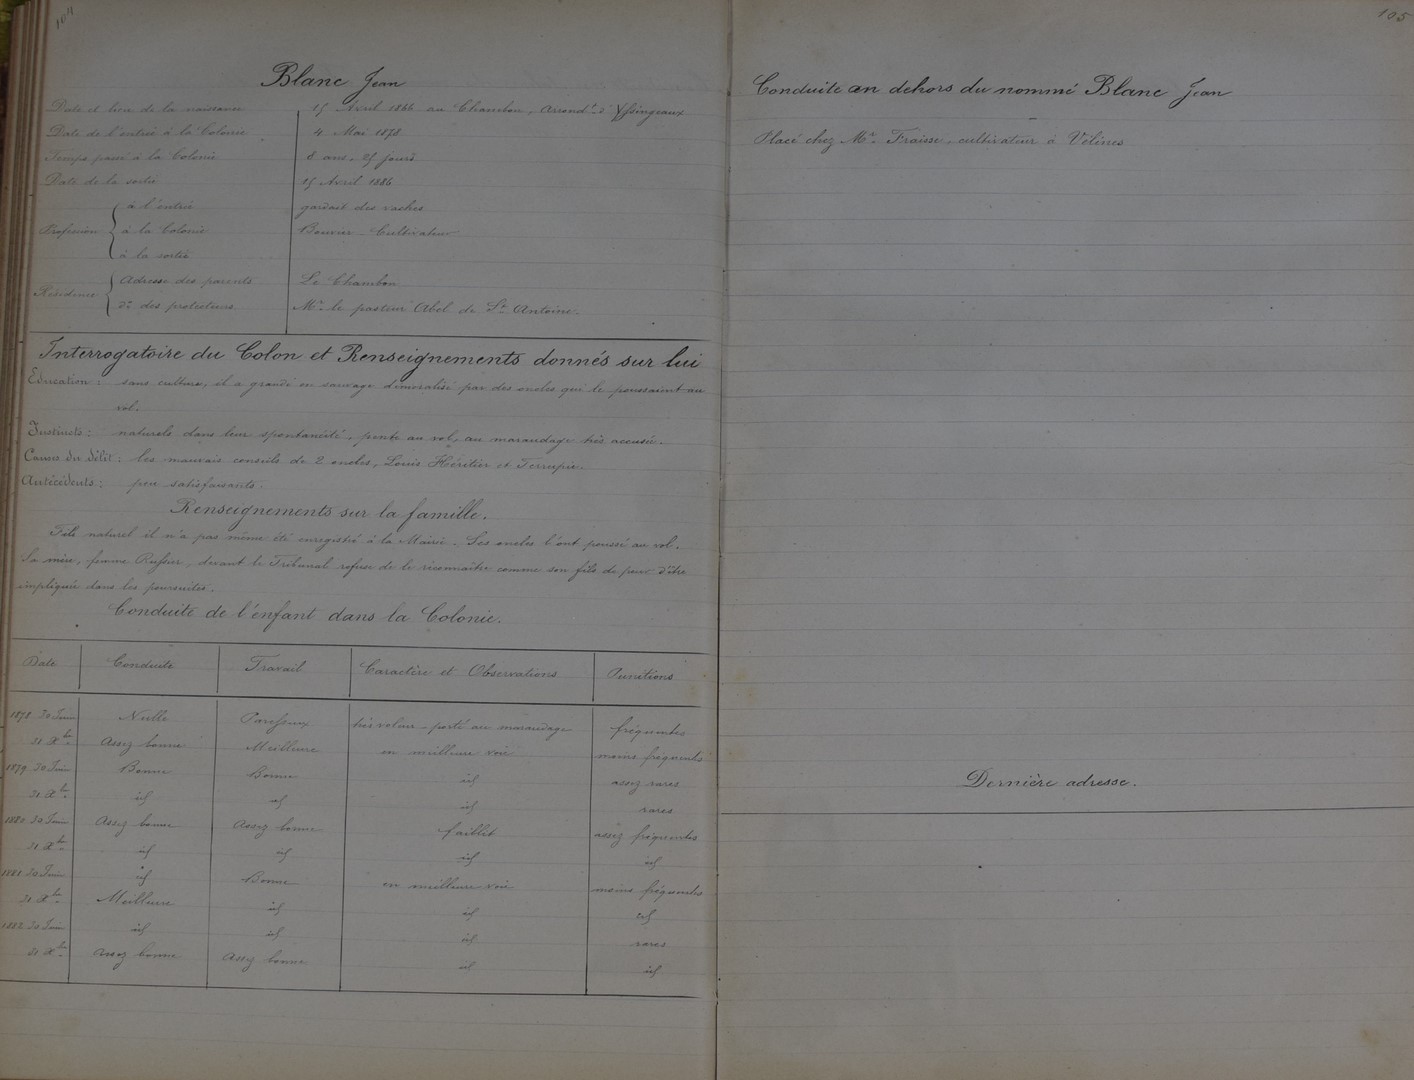 104
Blanc Jean
Date et lieu de la naissance 15 Avril 1866 au Chambon, Arrondt. d'Yssingeaux
Date de l'entrée à la Colonie 4 Mai 1878
Temps passé à la Colonie 8 ans, 25 jours
Date de la sortie 15 Avril 1886
Profession
à l'entrée gardait des vaches
à la Colonie Bouvier - Cultivateur
à la sortie
Résidence
Adresse des parents Le Chambon
do des protecteurs Mr. le pasteur Abel de St. Antoine.
Interrogatoire du Colon et Renseignements donnés sur lui
Education : sans culture, il a grandi en sauvage démoralisé par des oncles qui le poussaient au
vol.
Instincts : naturels dans leur spontanéité, pente au vol, au maraudage très accusée.
Causes du délit : les mauvais conseils de 2 oncles, Louis Héritier et
Antécédents : peu satisfaisants.
Renseignements sur la famille.
Fils naturel il n'a pas même été enregistré à la Mairie. Ses oncles l'ont poussé au vol.
Sa mère, femme Ruffier, devant le Tribunal refuse de le reconnaître comme son fils de peur d'être
impliquée dans les poursuites.
Conduite de l'enfant dans la Colonie.
Date Conduite Travail Caractère et Observations Punitions
1878 30 Juin Nulle Paresseux très voleur - porté au maraudage fréquentes
31 Xbre Assez bonne Meilleure en meilleure voie moins fréquents
1879 30 Juin Bonne Bonne id assez rares
31 Xbre id id id rares
1880 30 Juin Assez bonne Assez bonne faillit assez fréquentes
31 Xbre id id id id
1881 30 Juin id Bonne en meilleure voie moins fréquentes
31 Xbre Meilleure id id id
1882 30 Juin id id id rares
31 Xbre Assez bonne Assez bonne id id
105
Conduite en dehors du nommé Blanc Jean
Placé chez Mr. Fraisse, cultivateur à Vélines
Dernière adresse.